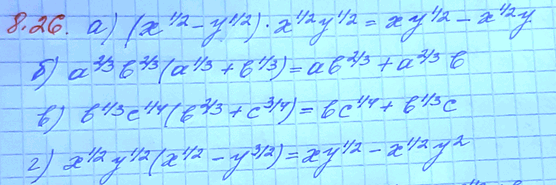 8.26. а) (x^1/2 - y^1/2) · x^1/2 y^1/2 = xy^1/2 - x^1/2 y
б) a^2/3 b^2/3 (a^1/3 + b^1/3) = ab^2/3 + a^2/3 b
в) b^1/3 c^1/4 (b^2/3 + c^3/4) = bc^1/4 + b^1/3 c
г) x^1/2 y^1/2 (x^1/2 - y^3/2) = xy^1/2 - x^1/2 y^2